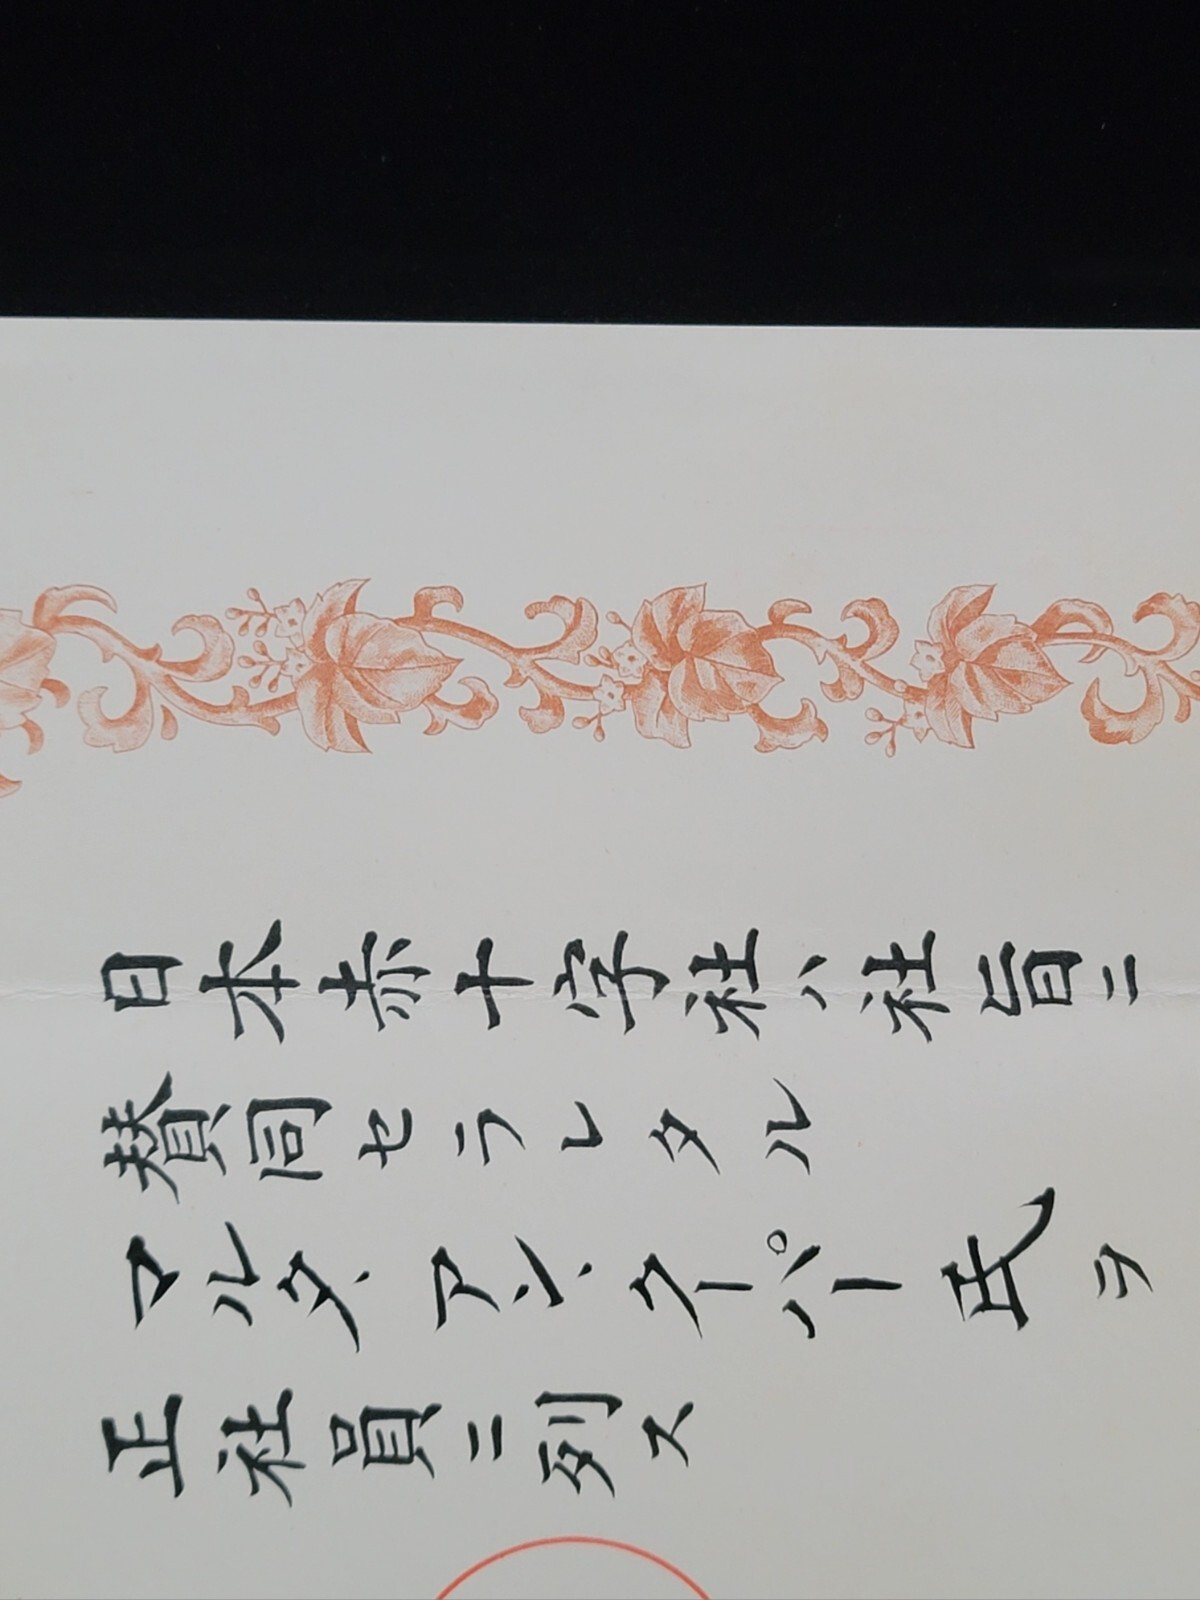 日本赤十字社ハ社旨ニ
賛同セラレタル
マルダ、アン、クーパー氏ヲ
正社員ニ列ス